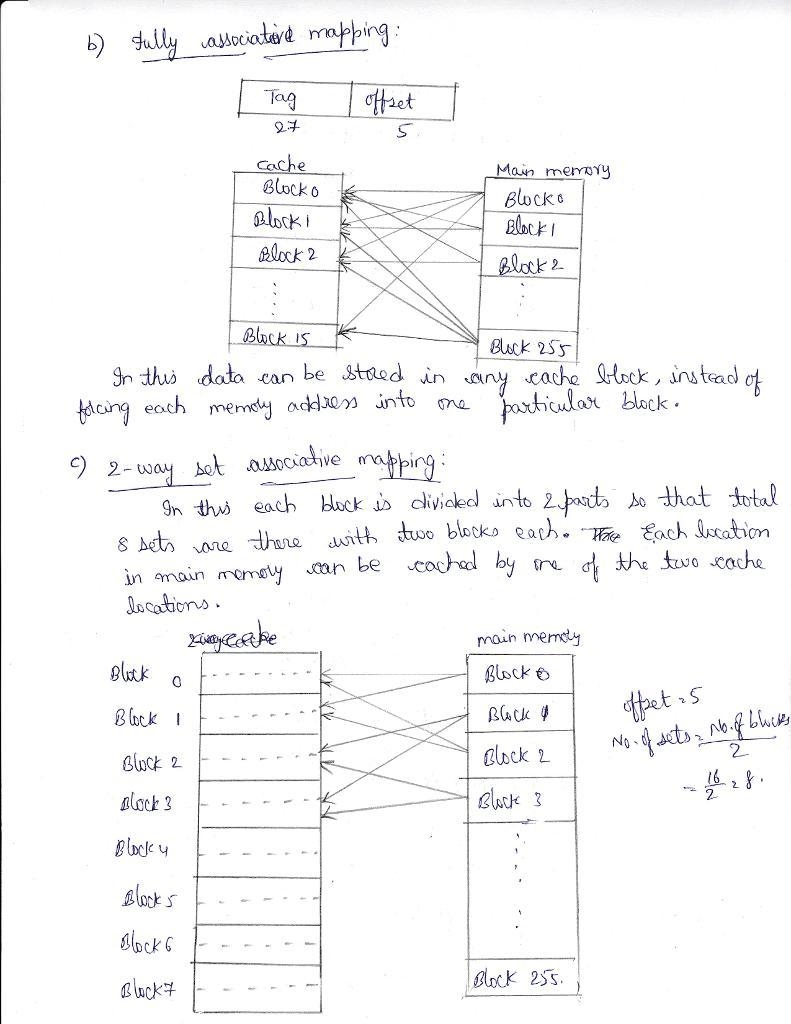 b) Fully associative mapping:
Tag offset
27 5
cache Main memory
Block 0 Block 0
Block 1 Block 1
Block 2 Block 2
Block 15 Block 255
In this data can be stored in any cache block, instead of
forcing each memory address into one particular block.
c) 2-way set associative mapping:
In this each block is divided into 2 parts so that total
8 sets are there with two blocks each. Each location
in main memory can be cached by one of the two cache
locations.
main memory
Block 0 Block 0
Block 1 Block 1
Block 2 Block 2
Block 3 Block 3
Block 4
Block 5
Block 6
Block 7 Block 255.
offset = 5
No. of sets = No. of blocks
2
= 16/2 = 8.